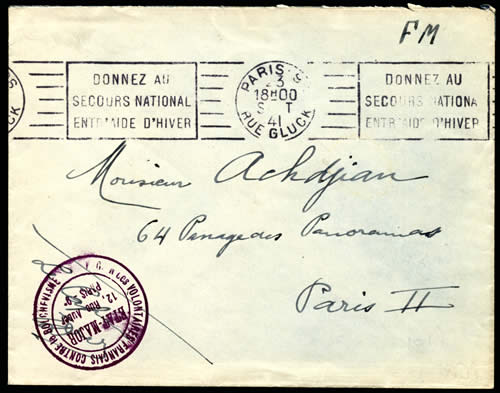 FM
DONNEZ AU
SECOURS NATIONAL
ENTR'AIDE D'HIVER
PARIS 9
23
18H00
S T
41
RUE GLUCK
DONNEZ AU
SECOURS NATIONA
ENTR'AIDE D'HIVER
Monsieur Achdjian
64 Passage des Panoramas
Paris II
VOLONTAIRES FRANÇAIS CONTRE le BOLCHEVISME
ETAT-MAJOR
12, Rue Auber
PARIS-9